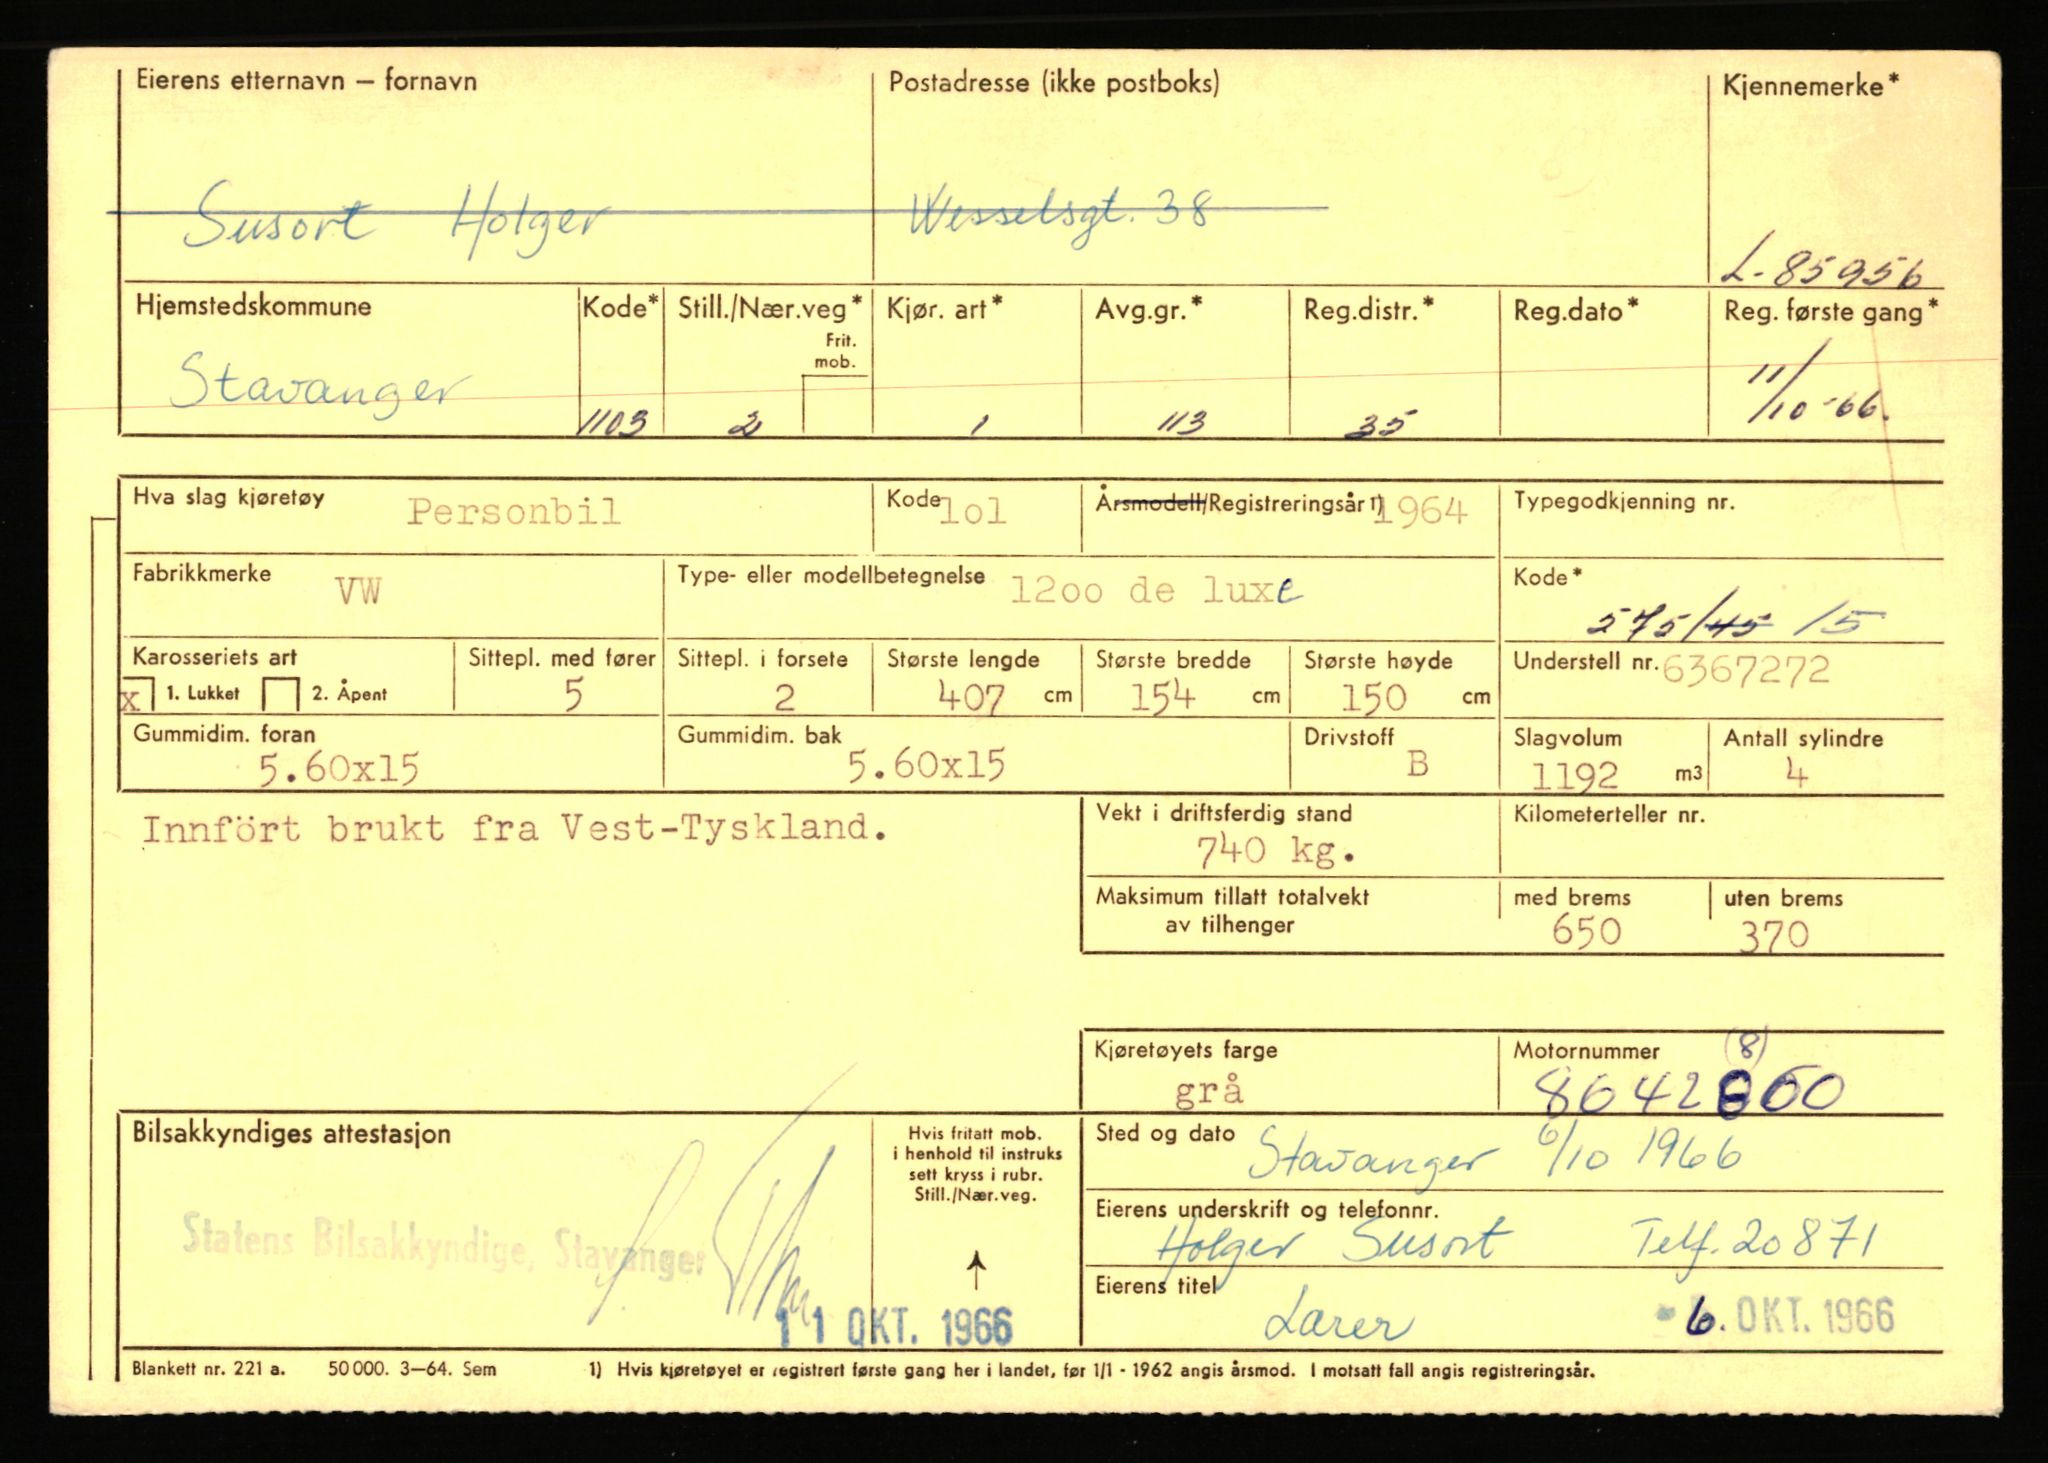 Eierens etternavn – fornavn Postadresse (ikke postboks) Kjennemerke*
Susort Holger Wesselsgt. 38
L-85956
Hjemstedskommune Kode* Still./Nær.veg* Kjør. art* Avg.gr.* Reg.distr.* Reg.dato* Reg. første gang*
Frit.
mob.
Stavanger 1103 2 1 113 35 11/10-66.
Hva slag kjøretøy Personbil Kode 1o1 Årsmodell/Registreringsår 1) 1964 Typegodkjenning nr.
Fabrikkmerke VW Type- eller modellbetegnelse 12oo de luxe Kode*
575/45 15
Karosseriets art Sittepl. med fører Sittepl. i forsete Største lengde Største bredde Største høyde Understell nr. 6367272
x 1. Lukket 2. Åpent 5 2 407 cm 154 cm 150 cm
Gummidim. foran Gummidim. bak Drivstoff Slagvolum Antall sylindre
5.60x15 5.60x15 B 1192 m3 4
Innfört brukt fra Vest-Tyskland.
Vekt i driftsferdig stand Kilometerteller nr.
740 kg.
Maksimum tillatt totalvekt med brems uten brems
av tilhenger 650 370
Kjøretøyets farge Motornummer (8)
grå 8642860
Bilsakkyndiges attestasjon
Hvis fritatt mob.
i henhold til instruks
sett kryss i rubr.
Still./Nær.veg.
Sted og dato Stavanger 6/10 1966
Statens Bilsakkyndige, Stavanger
11 OKT. 1966
Eierens underskrift og telefonnr.
Holger Susort Telf. 20871
Eierens titel
Lærer 6. OKT. 1966
Blankett nr. 221 a. 50 000. 3–64. Sem 1) Hvis kjøretøyet er registrert første gang her i landet, før 1/1 - 1962 angis årsmod. I motsatt fall angis registreringsår.